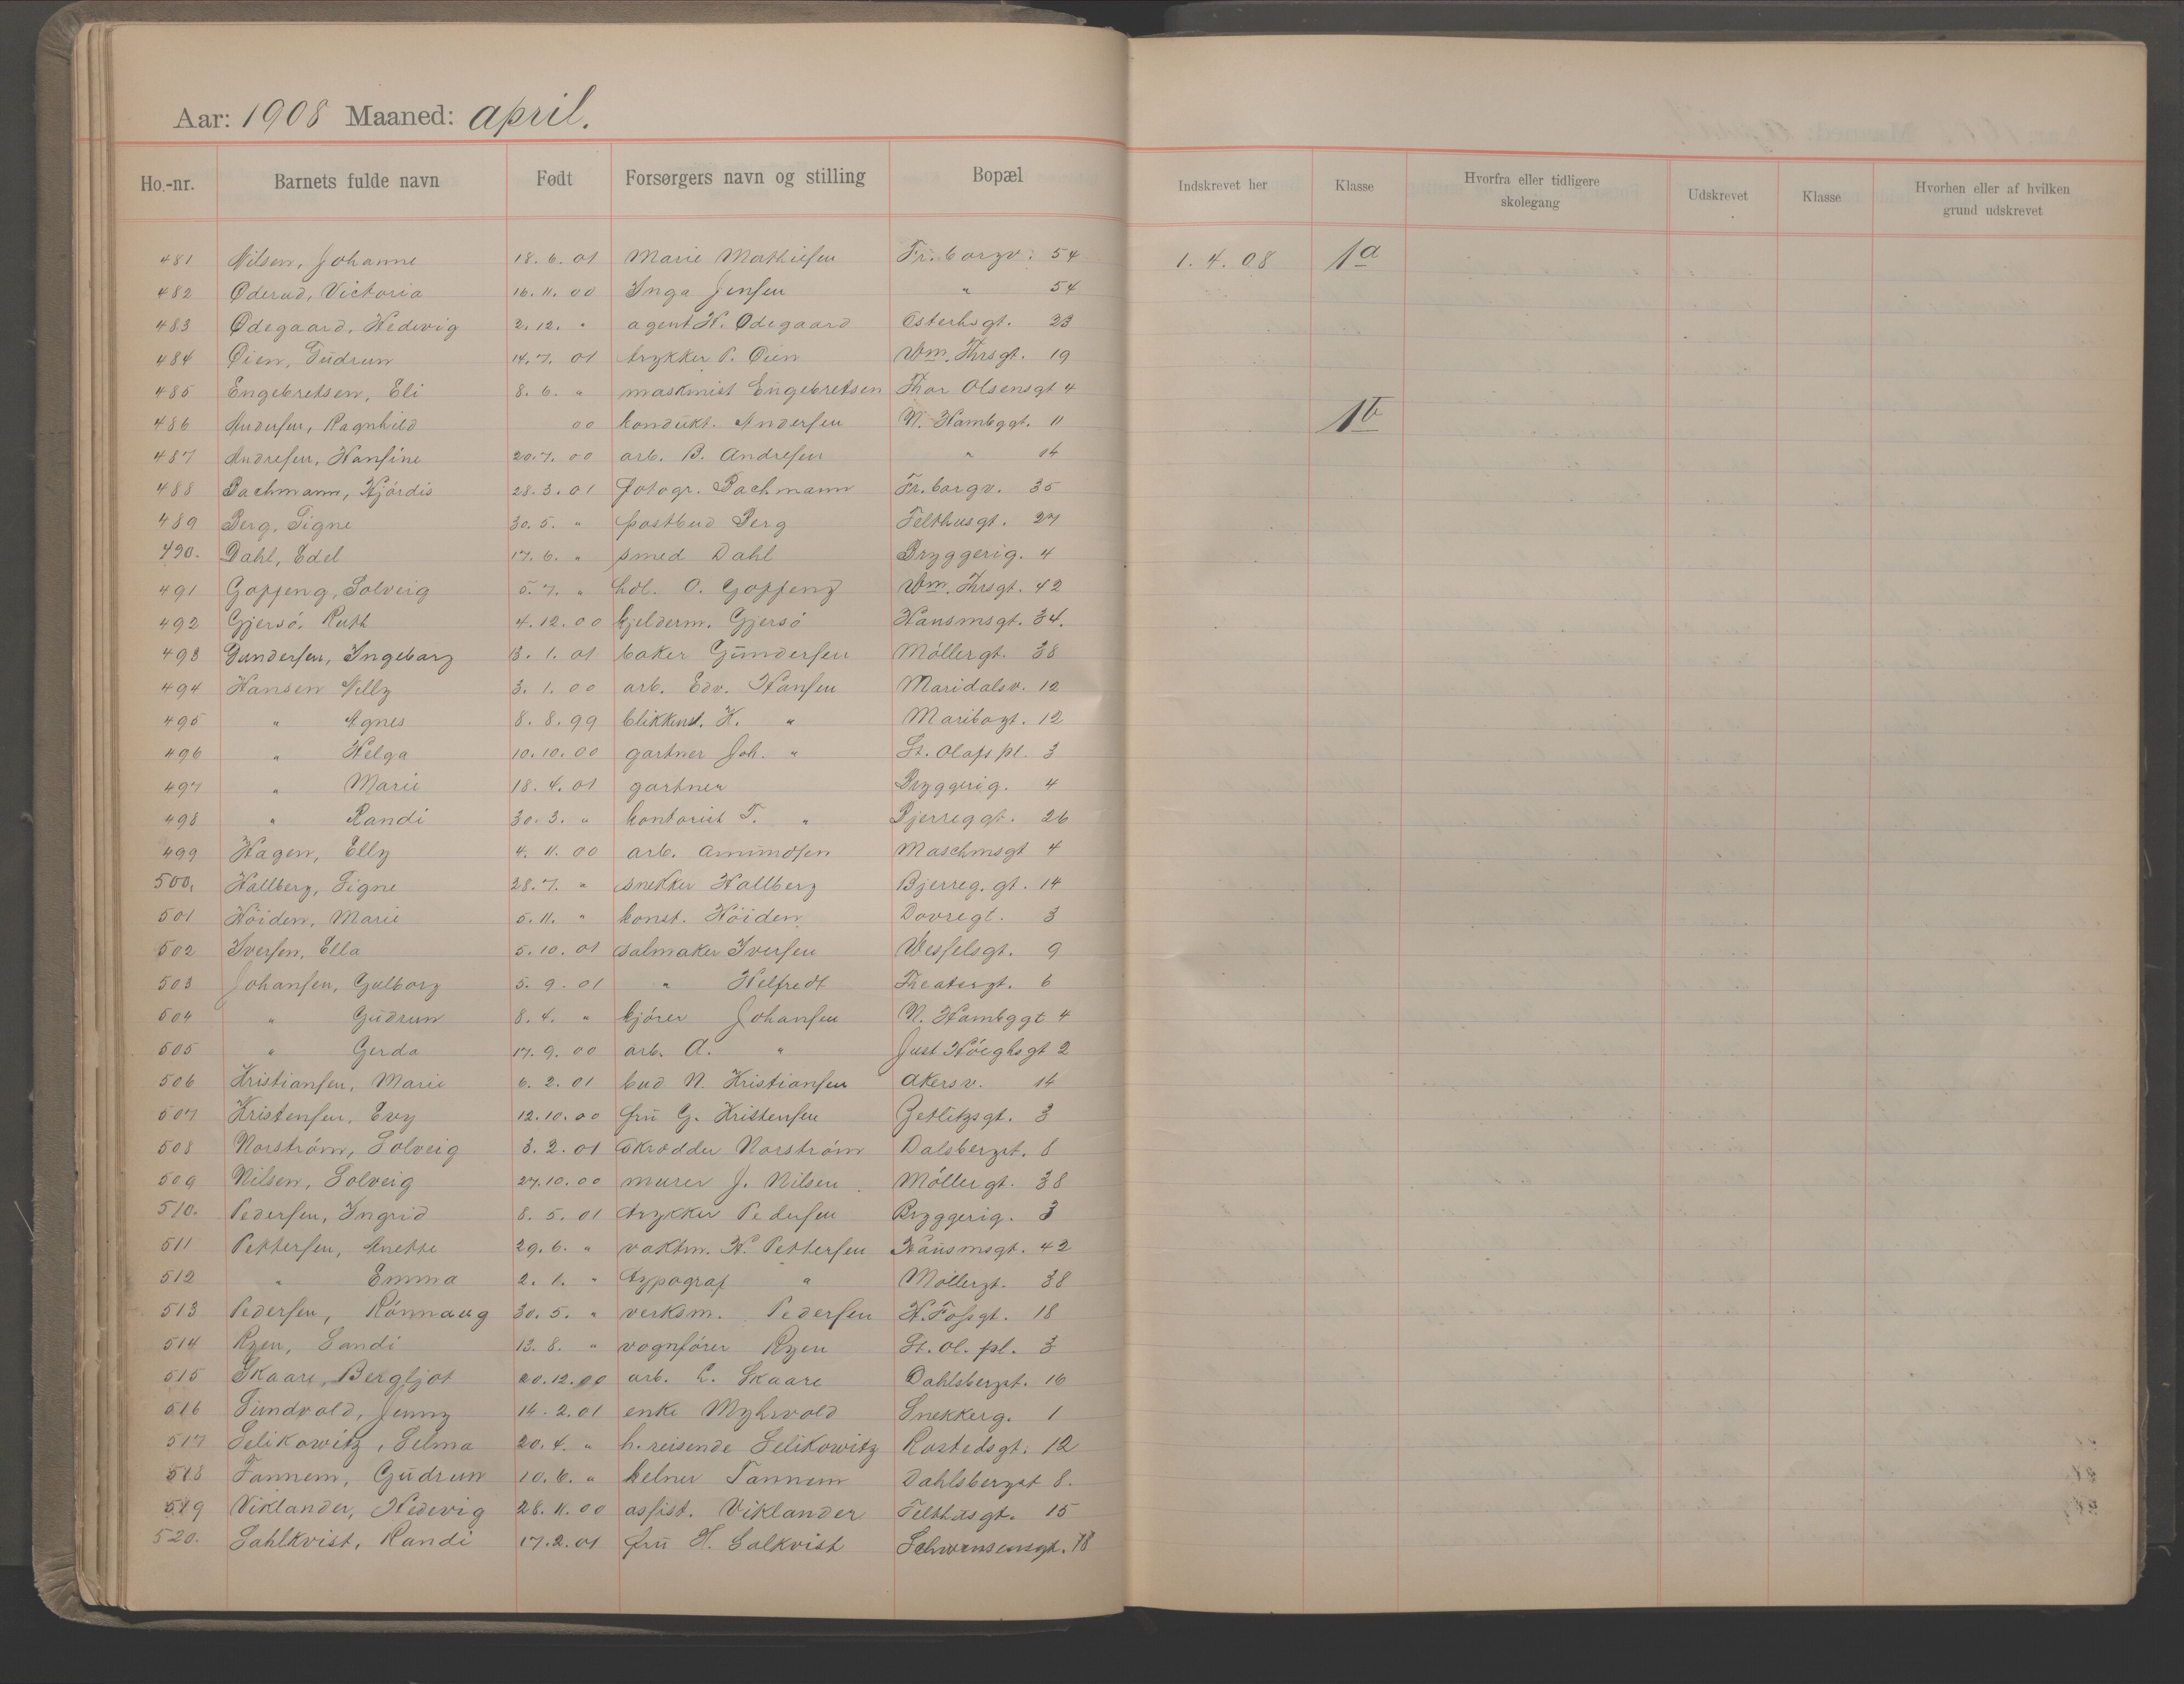 Aar: 1908 Maaned: april.
Ho.-nr. Barnets fulde navn Født Forsørgers navn og stilling Bopæl Indskrevet her Klasse Hvorfra eller tidligere skolegang Udskrevet Klasse Hvorhen eller af hvilken grund udskrevet
481 Nilsen, Johanne 18. 6. 01 Marie Mathiesen Fr. borgv. 54 1. 4. 08 1a
482 Øderud, Victoria 16. 11. 00 Inga Jensen " 54
483 Ødegaard, Hedevig 2. 12. " agent H. Ødegaard Osterhsgt. 23
484 Øien, Gudrun 14. 7. 01 trykker P. Øien Wm. Thrsgt. 19
485 Engebretsen, Eli 8. 6. " maskinist Engebretsen Thor Olsensgt 4
486 Andersen, Ragnhild 00 kondukt. Andersen N. Hambggt. 11 1b
487 Andresen, Hansine 20. 7. 00 arb. B. Andresen " 14
488 Bachmann, Hjördis 28. 3. 01 fotogr. Bachmann Fr. borgv. 35
489 Berg, Signe 30. 5. " postbud Berg Felthusgt. 27
490. Dahl, Edel 17. 6. " smed Dahl Bryggerig. 4
491 Gopfeng, Solveig 5. 7. " hdl. O. Gopfeng Wm. Thrsgt. 42
492 Gjersö, Ruth 4. 12. 00 kjelderm. Gjersö Hausmsgt. 34.
493 Gundersen, Ingeborg 13. 1. 01 baker Gundersen Möllergt. 38
494 Hansen Nelly 3. 1. 00 arb. Edv. Hansen Maridalsv. 12
495 " Agnes 8. 8. 99 blikkensl. H. " Maribogt. 12
496 " Helga 10. 10. 00 gartner Joh. " St. Olafs pl. 3
497 " Marie 18. 4. 01 gartner Bryggerig. 4
498 " Randi 30. 3. " kontorist T. " Bjerreggt. 26
499 Hagen, Elly 4. 11. 00 arb. Amundsen Maschmsgt 4
500. Hallberg, Signe 28. 7. " snekker Hallberg Bjerreg. gt. 14
501 Höiden, Marie 5. 11. " konst. Höiden Dovregt. 3
502 Iversen, Ella 5. 10. 01 salmaker Iversen Wesselsgt. 9
503 Johansen, Gulborg 5. 9. 01 " Helfredt Theatergt. 6
504 " Gudrun 8. 4. " kjörer Johansen N. Hambggt 4
505 " Gerda 17. 9. 00 arb. A. " Just Höeghsgt 2
506 Kristiansen, Marie 6. 2. 01 bud N. Kristiansen Akersv. 14
507 Kristensen, Evy 12. 10. 00 fru G. Kristensen Zetlitzsgt. 3
508 Norström, Solveig 3. 2. 01 skrædder Norström Dalsbergst. 8
509 Nilsen, Solveig 27. 10. 00 murer J. Nilsen Möllergt. 38
510. Pedersen, Ingrid 8. 5. 01 trykker Pedersen Bryggerig. 3
511 Pettersen, Anette 29. 6. " vaktm. H. Pettersen Hausmsgt. 42
512 " Emma 2. 1. " typograf " Möllergt. 38
513 Pedersen, Rönnaug 30. 5. " verksm. Pedersen H. Fossgt. 18
514 Ryen, Sandi 13. 8. " vognförer Ryen St. Ol. pl. 3
515 Skaare, Bergljot 20. 12. 00 arb. L. Skaare Dahlsbergst. 16
516 Sundvold, Jenny 14. 2. 01 enke Myhrvold Snekkerg. 1
517 Selikowitz, Selma 20. 4. " h. reisende Selikowitz Rostedsgt. 12
518 Tannem, Gudrun 10. 6. " kelner Tannem Dahlsbergst 8.
519 Viklander, Hedevig 28. 11. 00 assist. Viklander Felthusgt. 15
520. Sahlkvist, Randi 17. 2. 01 fru H. Salkvist Schwensensgt. 18